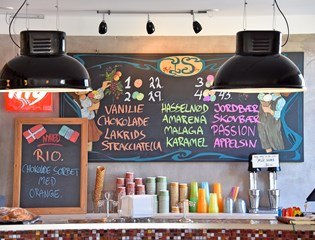 1 22
2 29
3
4 43
VANILIE
CHOKOLADE
LAKRIDS
STRACCIATELLA
HASSELNØD
AMARENA
MALAGA
KARAMEL
JORDBÆR
SKOVBÆR
PASSION
APPELSIN
NYHED
RIO.
CHOKOLADE SORBET
MED
ORANGE